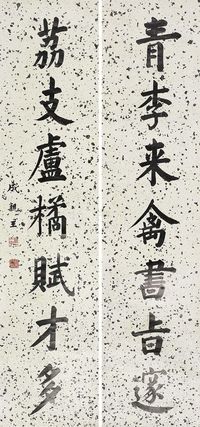 青李来禽書旨邃
荔支盧橘賦才多
成親王